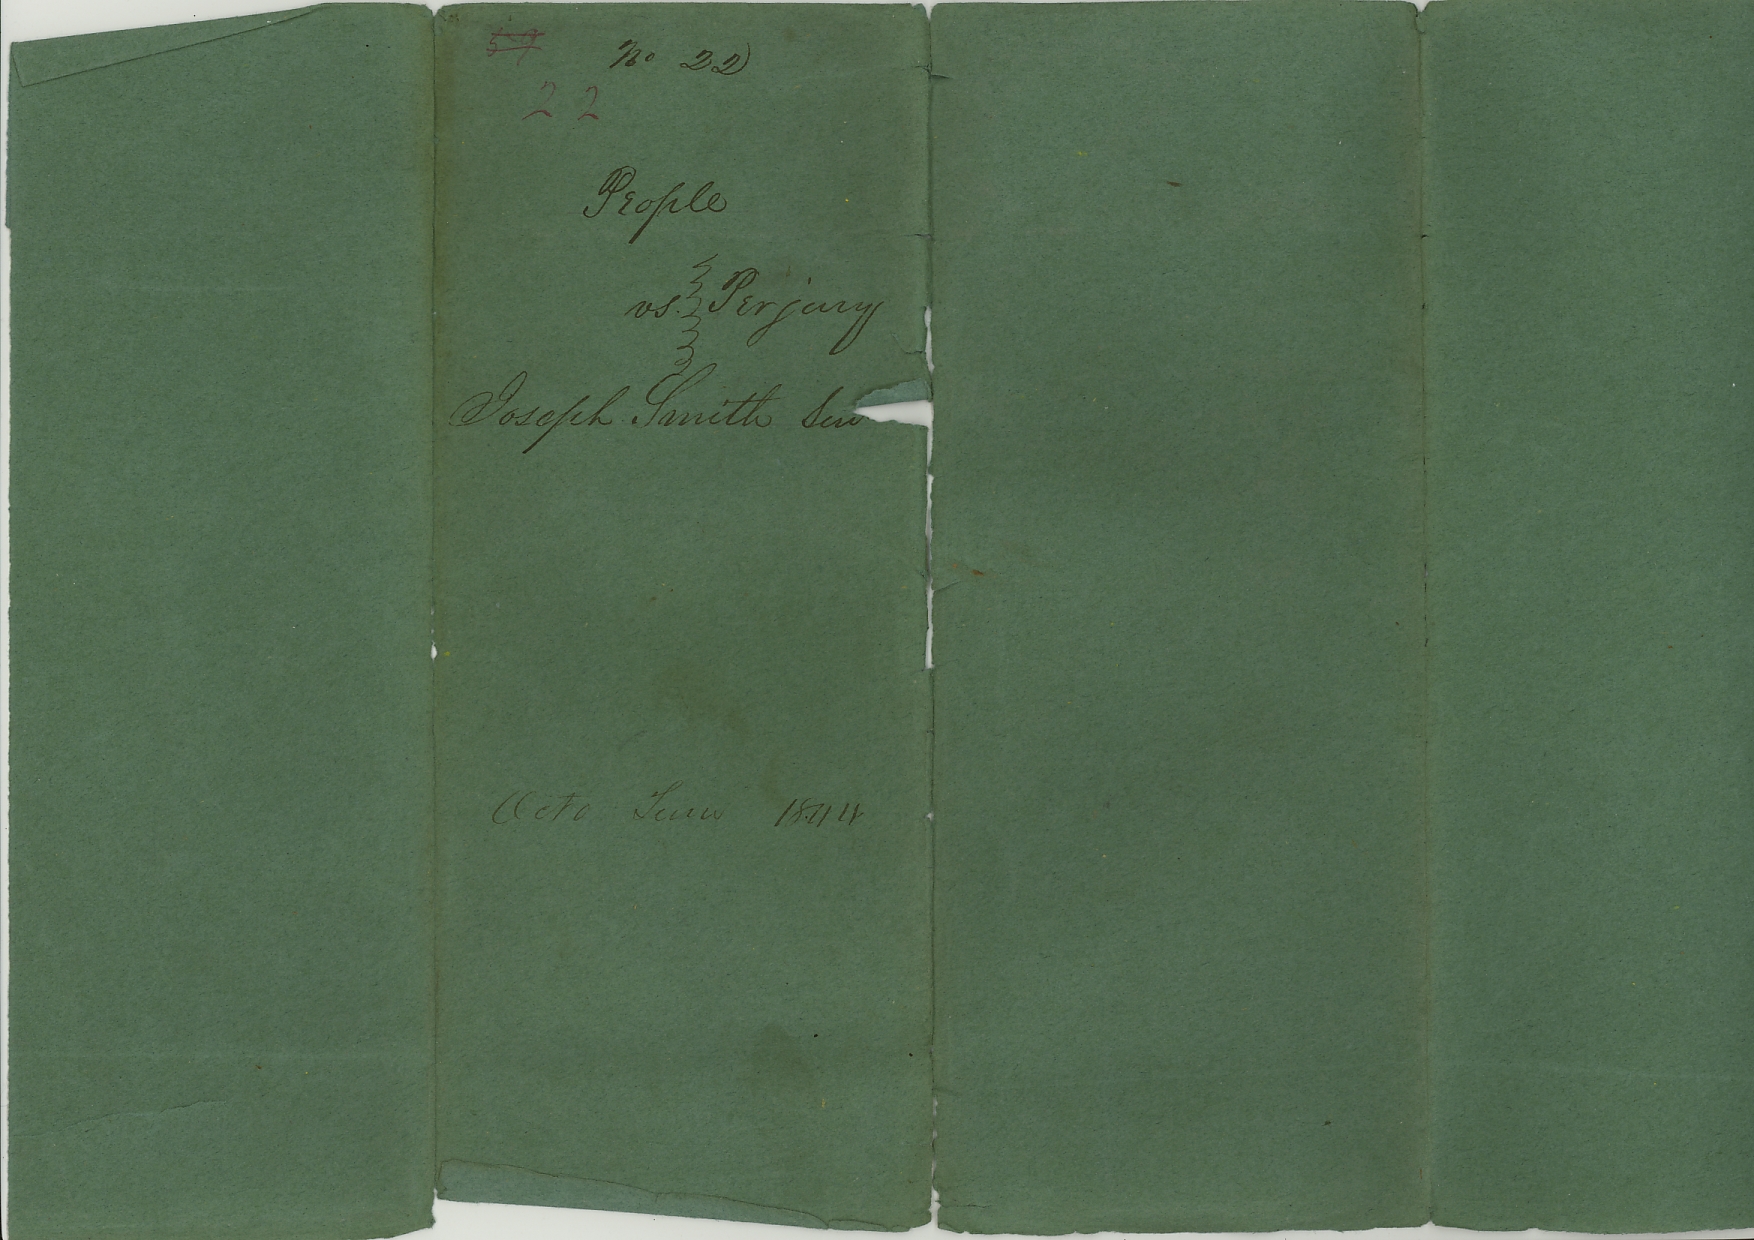 57
No 22
22
People
vs. Perjury
Joseph Smith Sen
Octo Term 1844